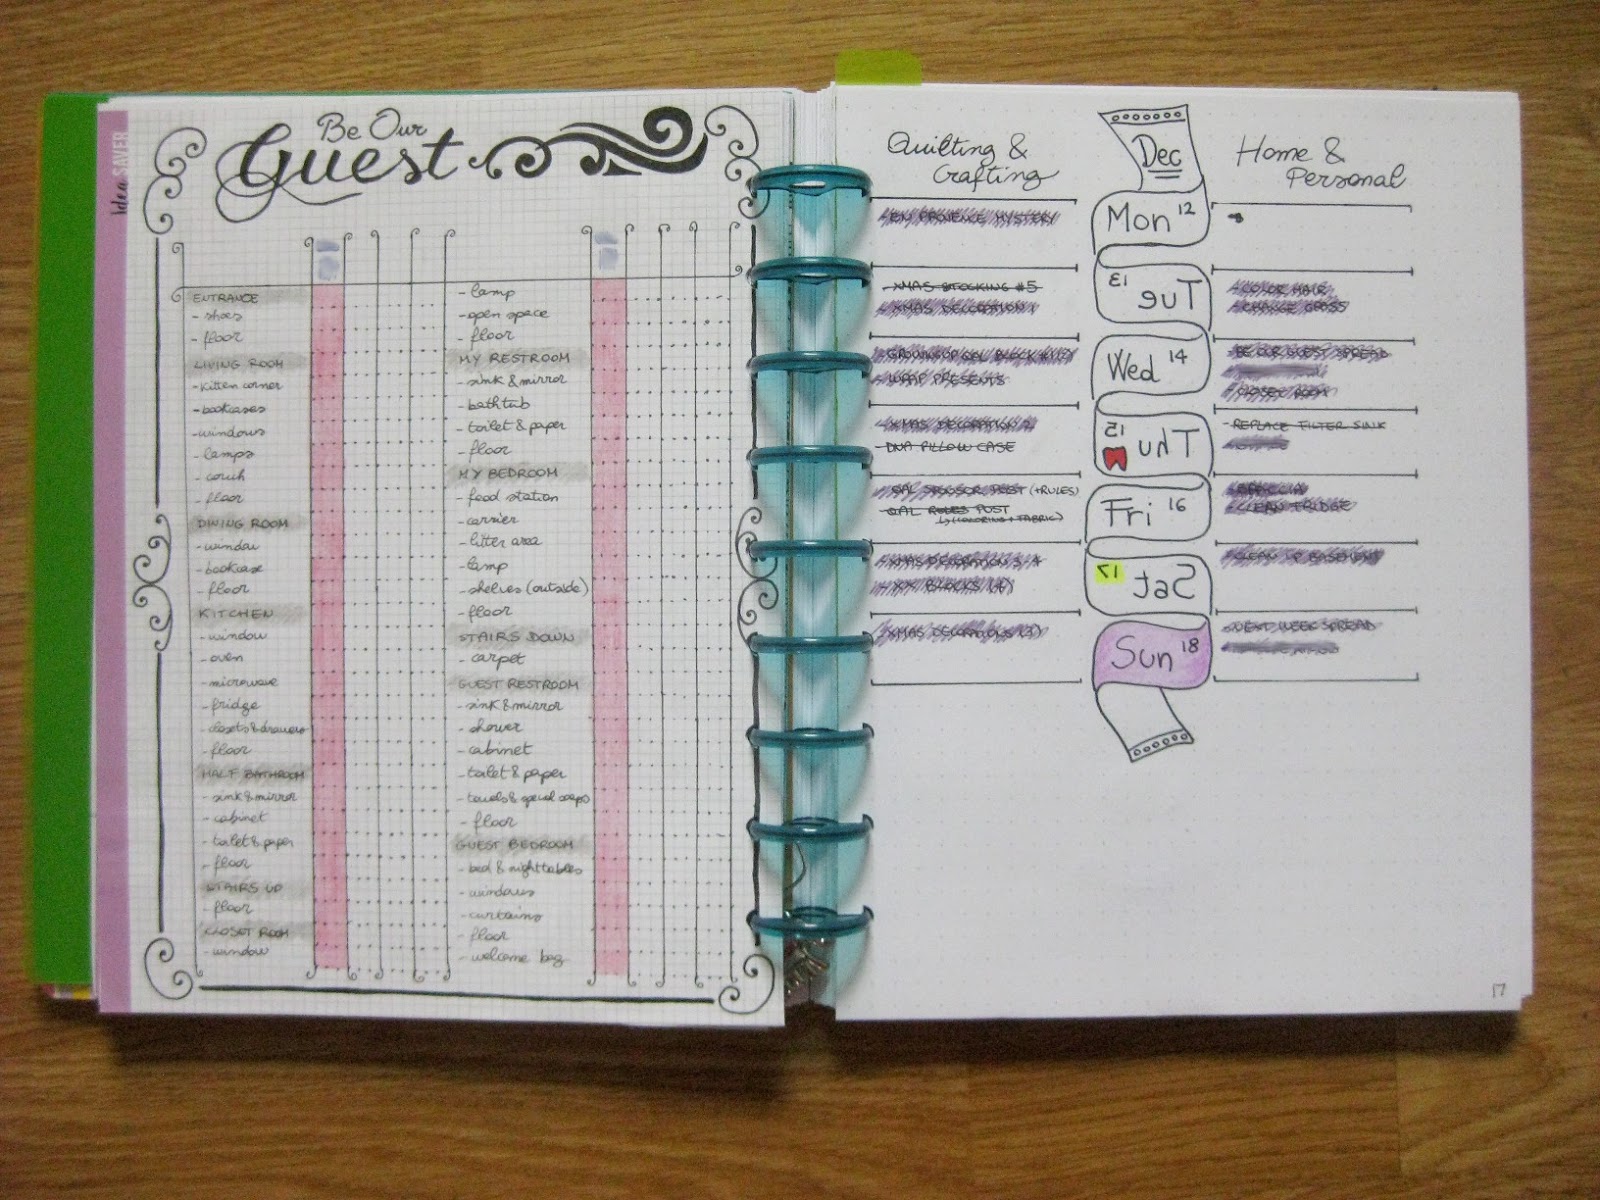 Idea SAVER
Be Our
Guest
ENTRANCE
- shoes
- floor
LIVING ROOM
- kitten corner
- bookcases
- windows
- lamps
- couch
- floor
DINING ROOM
- window
- bookcase
- floor
KITCHEN
- window
- oven
- microwave
- fridge
- closets & drawers
- floor
HALF BATHROOM
- sink & mirror
- cabinet
- toilet & paper
- floor
STAIRS UP
- floor
CLOSET ROOM
- window
- lamp
- open space
- floor
MY RESTROOM
- sink & mirror
- bathtub
- toilet & paper
- floor
MY BEDROOM
- food station
- carrier
- litter area
- lamp
- shelves (outside)
- floor
STAIRS DOWN
- carpet
GUEST RESTROOM
- sink & mirror
- shower
- cabinet
- toilet & paper
- towels & special soaps
- floor
GUEST BEDROOM
- bed & nighttables
- windows
- curtains
- floor
- welcome bag
Quilting &
Crafting
Dec
Home &
Personal
MYSTERY
Mon 12
- XMAS STOCKING #5
- XMAS DECORATION 1
Tue 13
- COLOR HAIR
- CHANGE
BLOCK
- WRAP PRESENTS
Wed 14
BE OUR GUEST SPREAD
CLOSET ROOM
- XMAS DECORATION 2
- DNA PILLOW CASE
Thu 15
- REPLACE FILTER SINK
- QAL SPONSOR POST (+RULES)
- QAL RULES POST
(COLORING + FABRIC)
Fri 16
- CLEAN FRIDGE
- XMAS DECORATIONS
BLOCKS
Sat 17
- CLEAN UP BASEMENT
- XMAS DECORATIONS (3)
Sun 18
- NEXT WEEK SPREAD
17